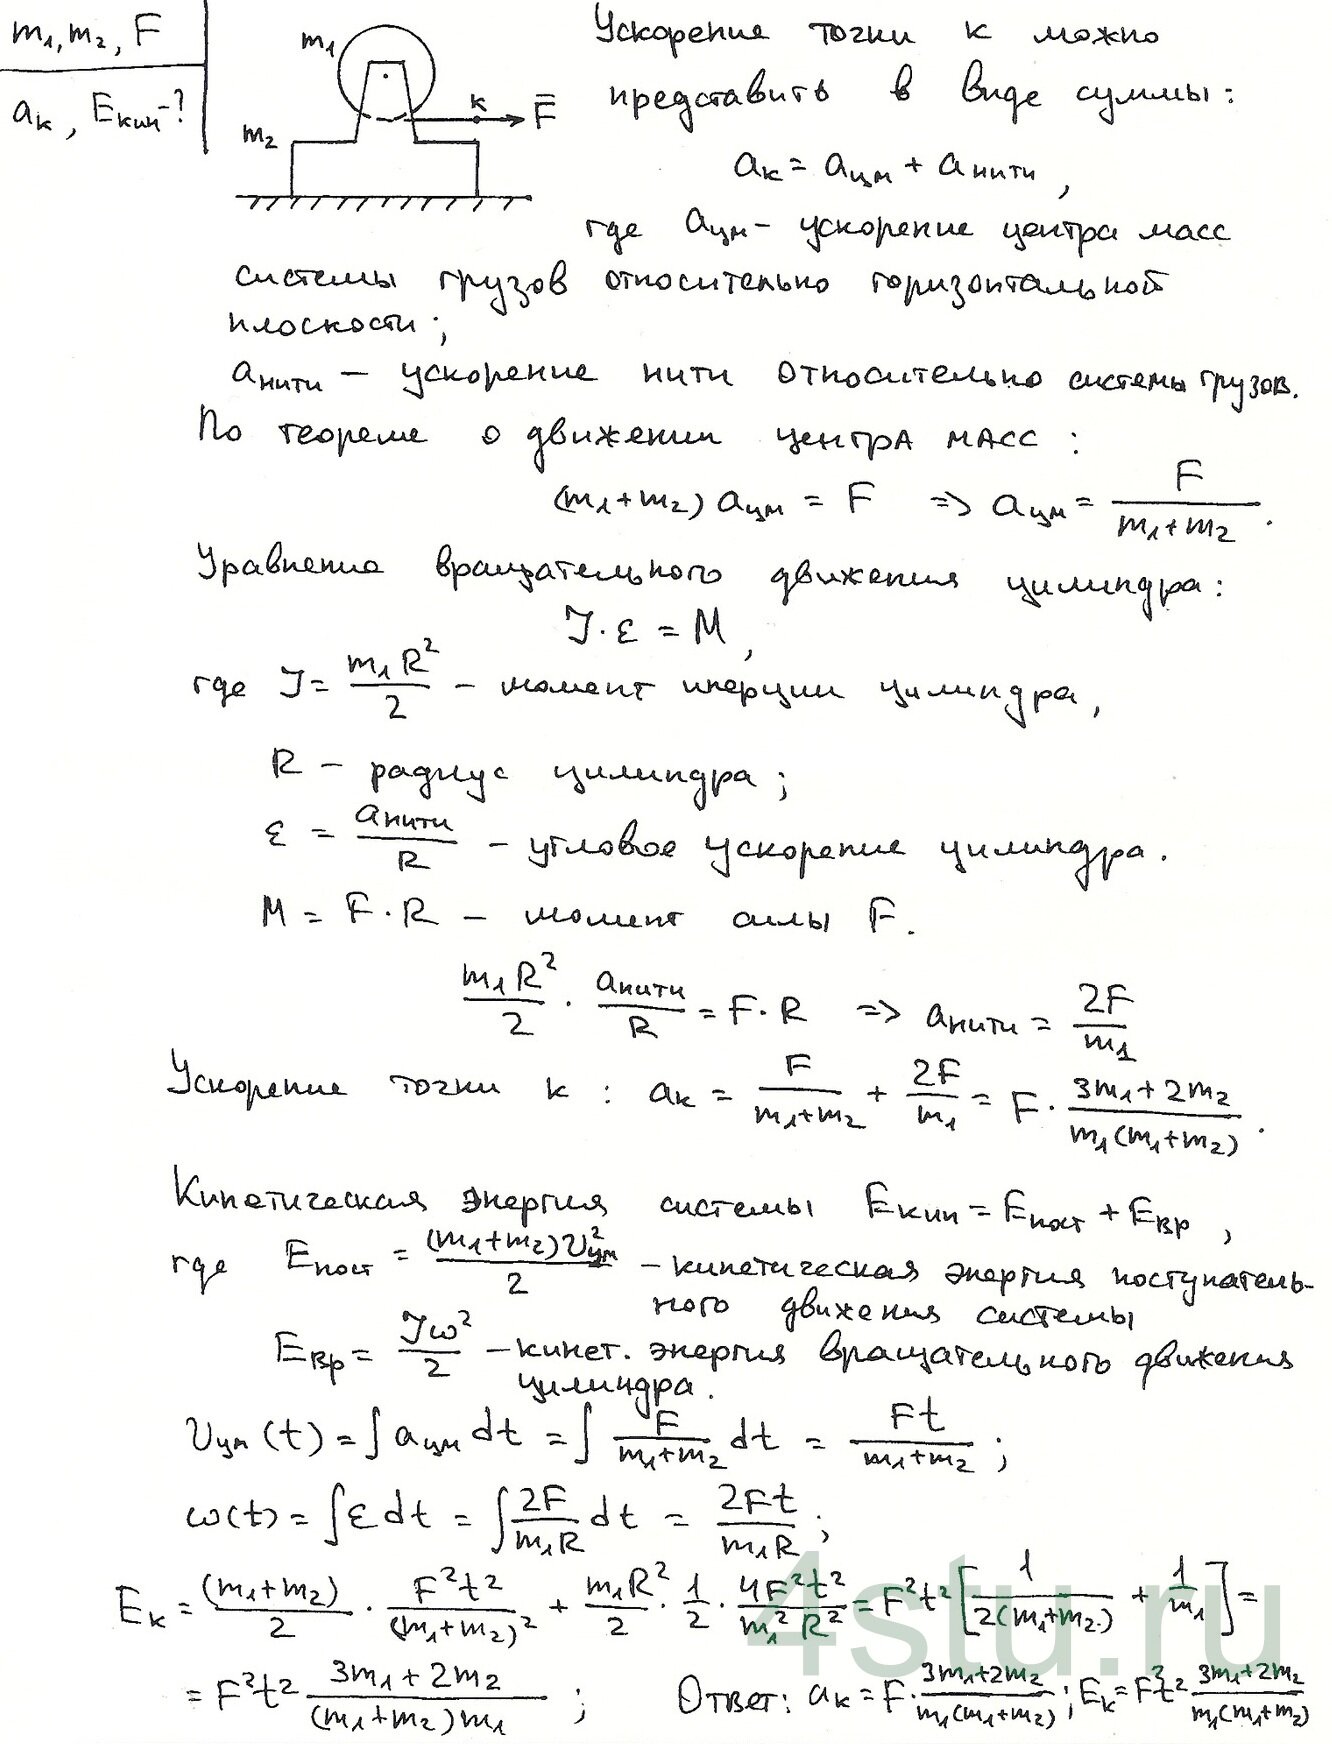 m₁, m₂, F
a_к, E_кин - ?
m₁
m₂
к
F̅
Ускорение точки к можно
представить в виде суммы:
a_к = a_цм + a_нити,
где a_цм - ускорение центра масс
системы грузов относительно горизонтальной
плоскости;
a_нити – ускорение нити относительно системы грузов.
По теореме о движении центра масс:
(m₁+m₂) a_цм = F => a_цм = F/(m₁+m₂).
Уравнение вращательного движения цилиндра:
J·ε = M,
где J = m₁R²/2 – момент инерции цилиндра,
R – радиус цилиндра;
ε = a_нити/R – угловое ускорение цилиндра.
M = F·R – момент силы F.
m₁R²/2 · a_нити/R = F·R => a_нити = 2F/m₁
Ускорение точки к: a_к = F/(m₁+m₂) + 2F/m₁ = F · (3m₁+2m₂)/(m₁(m₁+m₂)).
Кинетическая энергия системы E_кин = E_пост + E_вр,
где E_пост = (m₁+m₂)υ_цм²/2 – кинетическая энергия поступатель-
ного движения системы
E_вр = Jω²/2 – кинет. энергия вращательного движения
цилиндра.
υ_цм(t) = ∫a_цм dt = ∫ F/(m₁+m₂) dt = Ft/(m₁+m₂);
ω(t) = ∫ε dt = ∫ 2F/(m₁R) dt = 2Ft/(m₁R);
E_к = (m₁+m₂)/2 · F²t²/(m₁+m₂)² + m₁R²/2 · 1/2 · 4F²t²/(m₁²R²) = F²t² [1/(2(m₁+m₂)) + 1/m₁] =
= F²t² (3m₁+2m₂)/((m₁+m₂)m₁); Ответ: a_к = F · (3m₁+2m₂)/(m₁(m₁+m₂)); E_к = F²t² (3m₁+2m₂)/(m₁(m₁+m₂))
4stu.ru